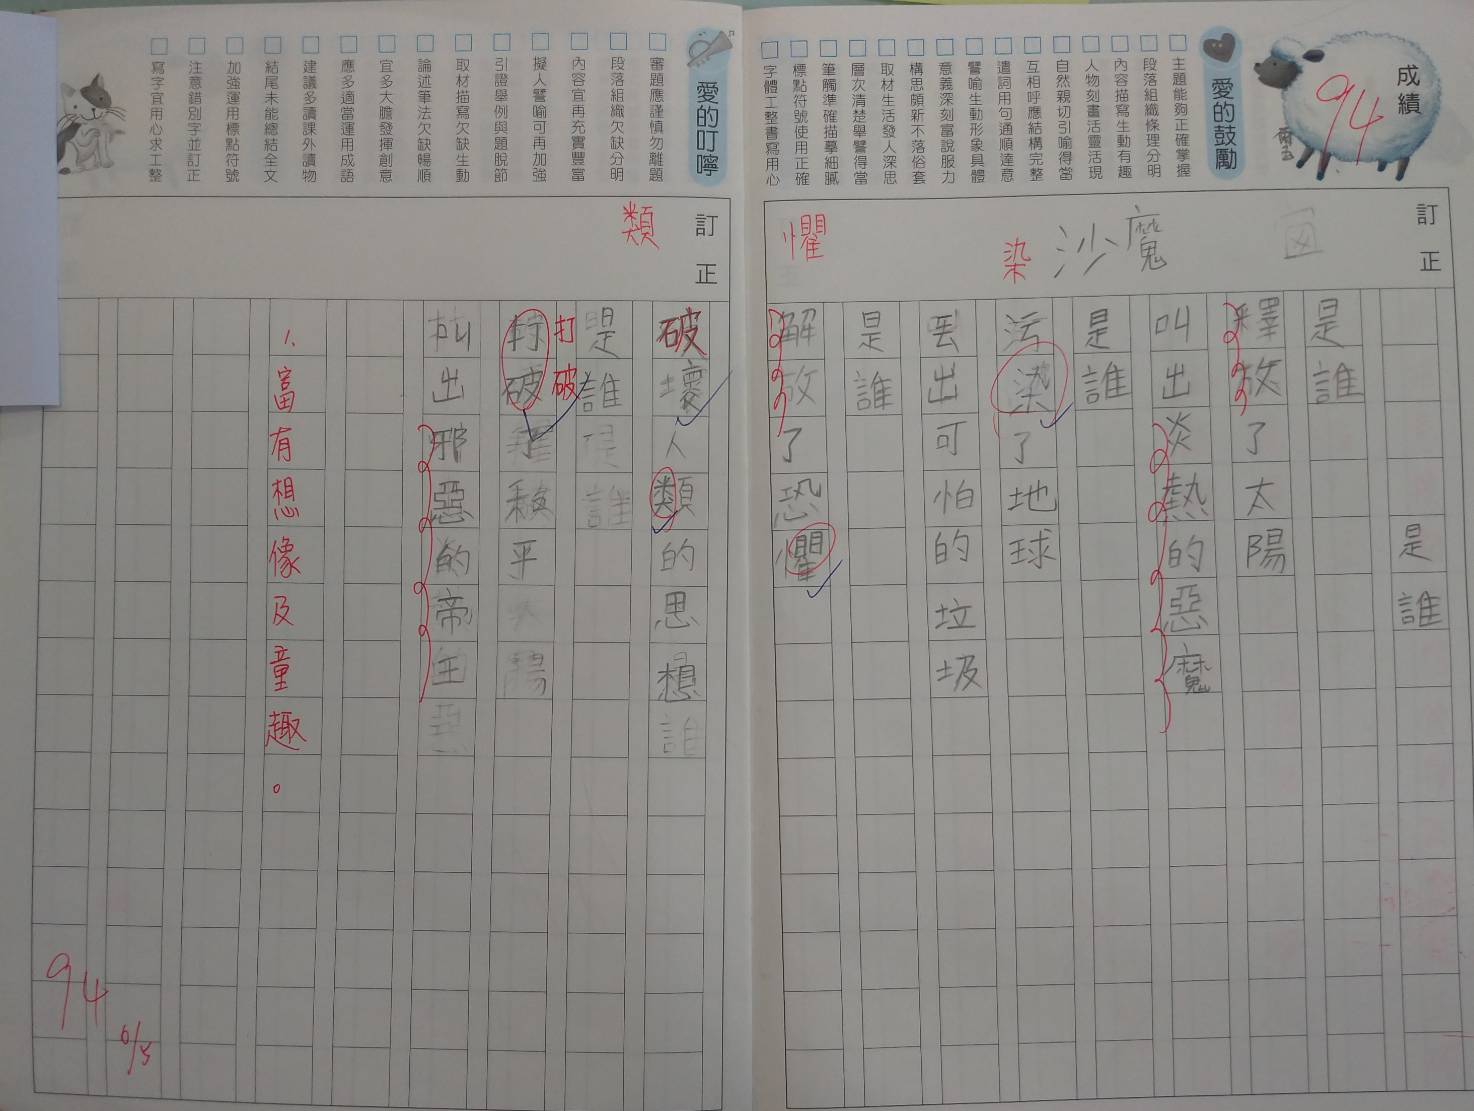 成績
94
愛的鼓勵
主題能夠正確掌握
段落組織條理分明
內容描寫生動有趣
人物刻畫活靈活現
自然親切引喻得當
互相呼應結構完整
遣詞用句通順達意
譬喻生動形象具體
意義深刻富說服力
構思頗新不落俗套
取材生活發人深思
層次清楚舉譬得當
筆觸準確描摹細膩
標點符號使用正確
字體工整書寫用心
訂正
魔
沙
染
懼
是誰
是誰
釋放了太陽
叫出炎熱的惡魔
是誰
污染了地球
丟出可怕的垃圾
是誰
解放了恐懼
愛的叮嚀
審題應謹慎勿離題
段落組織欠缺分明
內容宜再充實豐富
擬人譬喻可再加強
引證舉例與題脫節
取材描寫欠缺生動
論述筆法欠缺暢順
宜多大膽發揮創意
應多適當運用成語
建議多讀課外讀物
結尾未能總結全文
加強運用標點符號
注意錯別字並訂正
寫字宜用心求工整
訂正
類
破壞人類的思想
是誰
打破
打破了和平
叫出邪惡的帝王
1、富有想像及童趣。
94
6/5